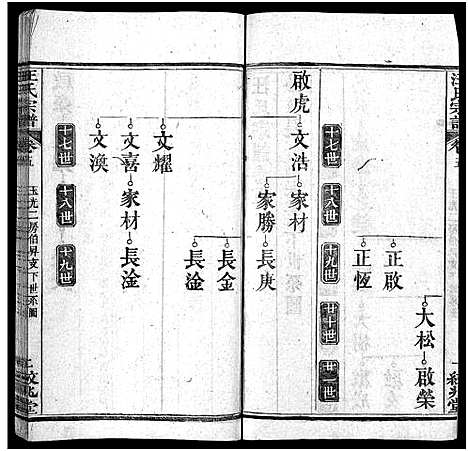 汪氏宗譜
卷五
大松 啟榮
正啟
正恆
十七世 十八世 十九世 二十世 廿一世
啟虎 文浩 家材
家勝 長庚
長金
長淦
文耀
文喜 家材 長淦
文渙
十七世 十八世 十九世
汪氏宗譜
卷五
玉光二房伯昇支下世系圖